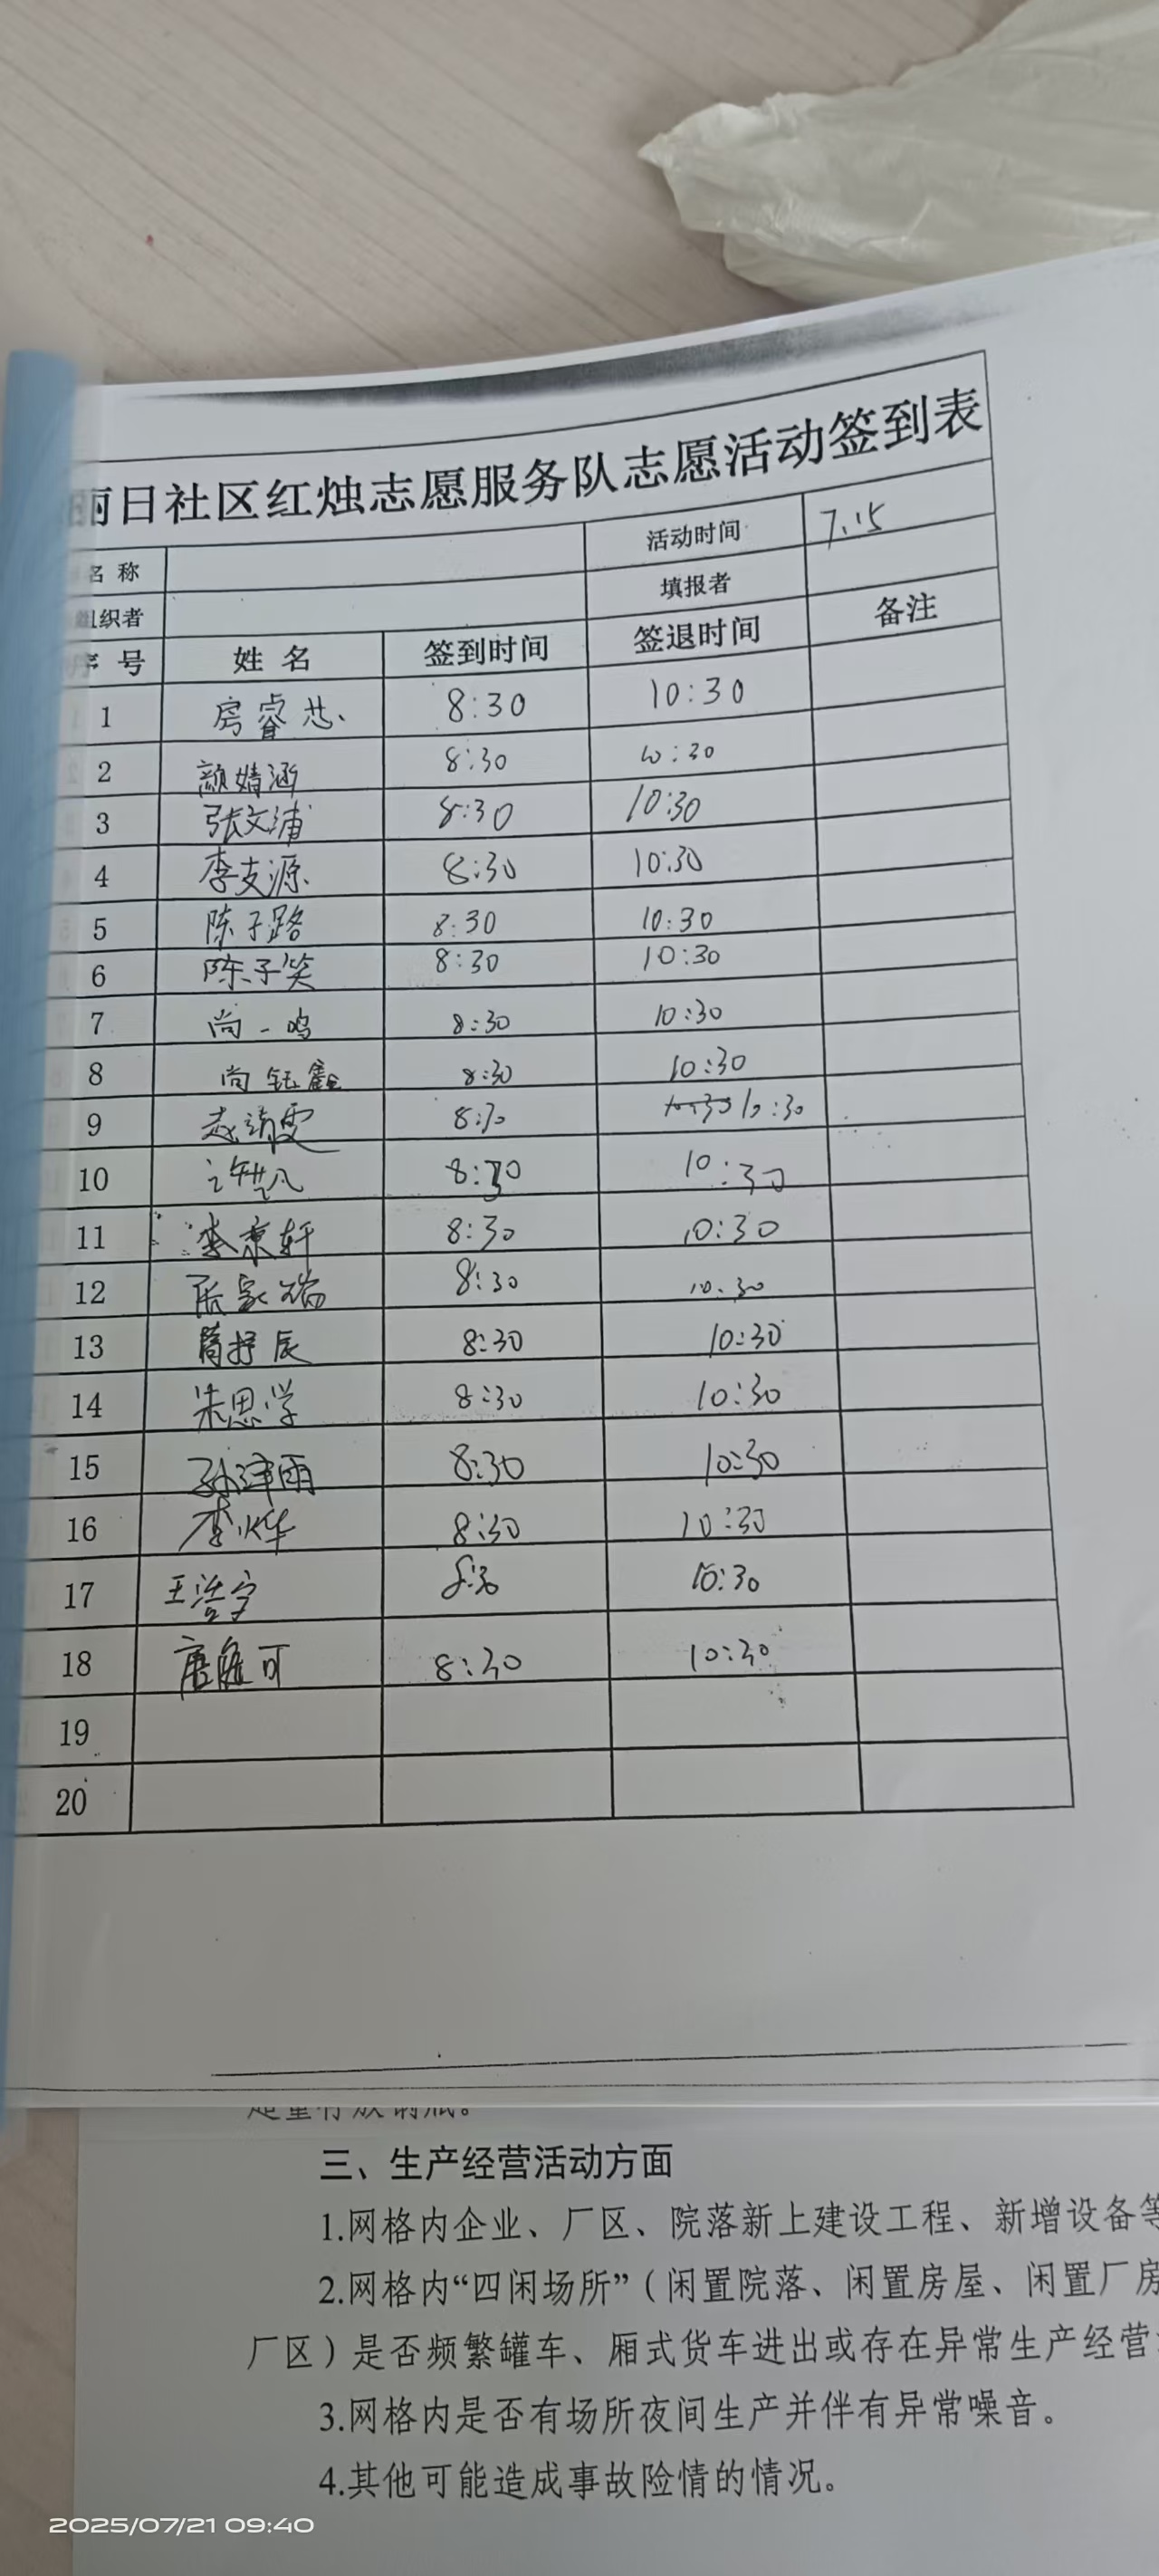 丽日社区红烛志愿服务队志愿活动签到表
名 称 活动时间 7.15
组织者 填报者
序 号 姓 名 签到时间 签退时间 备注
1 房睿芯 8:30 10:30
2 颜婧涵 8:30 10:30
3 张文浦 8:30 10:30
4 李支源 8:30 10:30
5 陈子路 8:30 10:30
6 陈子笑 8:30 10:30
7 尚一鸣 8:30 10:30
8 尚钰鑫 8:30 10:30
9 赵靖雯 8:30 10:30 10:30
10 8:30 10:30
11 李京轩 8:30 10:30
12 张家瑞 8:30 10:30
13 8:30 10:30
14 朱思学 8:30 10:30
15 孙津雨 8:30 10:30
16 李烨 8:30 10:30
17 王浩宇 8:30 10:30
18 唐 可 8:30 10:30
19
20
三、生产经营活动方面
1.网格内企业、厂区、院落新上建设工程、新增设备等
2.网格内“四闲场所”（闲置院落、闲置房屋、闲置厂房
厂区）是否频繁罐车、厢式货车进出或存在异常生产经营
3.网格内是否有场所夜间生产并伴有异常噪音。
4.其他可能造成事故险情的情况。
2025/07/21 09:40